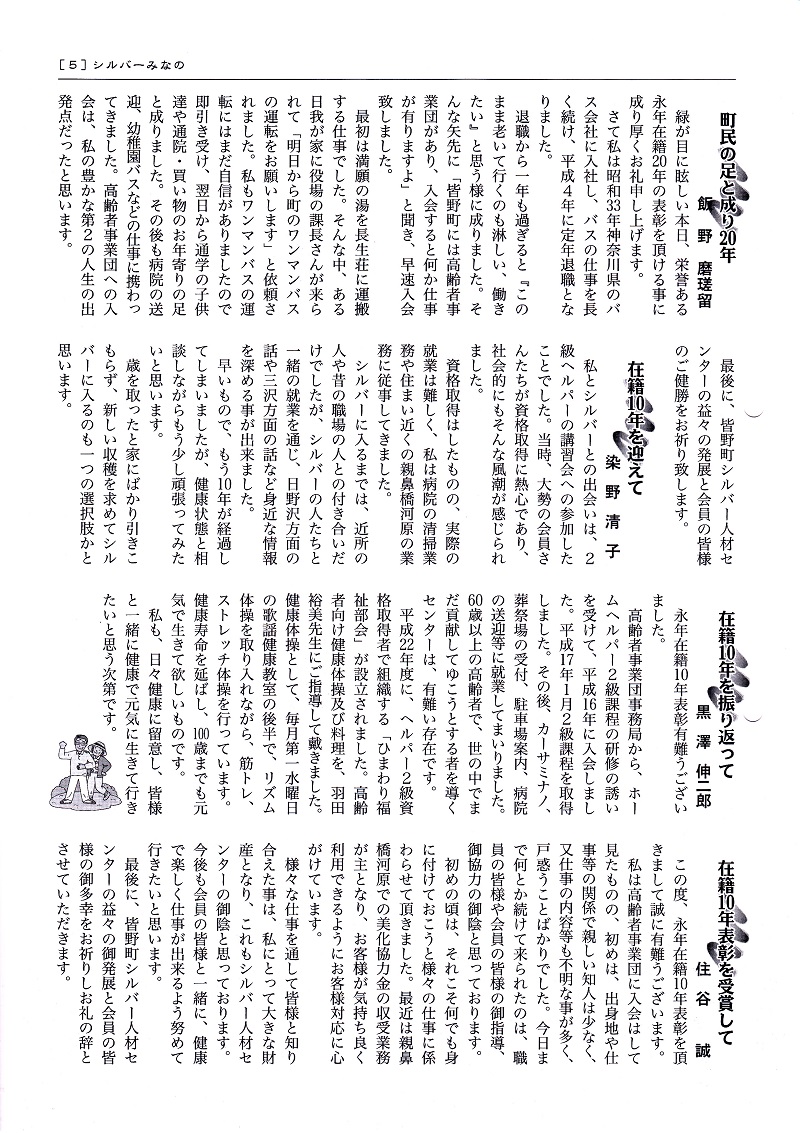 ［５］シルバーみなの
町民の足と成り20年
飯野　磨瑳留
緑が目に眩しい本日、栄誉ある
永年在籍20年の表彰を頂ける事に
成り厚くお礼申し上げます。
さて私は昭和33年神奈川県のバ
ス会社に入社し、バスの仕事を長
く続け、平成４年に定年退職とな
りました。
退職から一年も過ぎると『この
まま老いて行くのも淋しい、働き
たい』と思う様に成りました。そ
んな矢先に「皆野町には高齢者事
業団があり、入会すると何か仕事
が有りますよ」と聞き、早速入会
致しました。
最初は満願の湯を長生荘に運搬
する仕事でした。そんな中、ある
日我が家に役場の課長さんが来ら
れて「明日から町のワンマンバス
の運転をお願いします」と依頼さ
れました。私もワンマンバスの運
転にはまだ自信がありましたので
即引き受け、翌日から通学の子供
達や通院・買い物のお年寄りの足
と成りました。その後も病院の送
迎、幼稚園バスなどの仕事に携わっ
てきました。高齢者事業団への入
会は、私の豊かな第２の人生の出
発点だったと思います。
最後に、皆野町シルバー人材セ
ンターの益々の発展と会員の皆様
のご健勝をお祈り致します。
在籍10年を迎えて
染野　清子
私とシルバーとの出会いは、２
級ヘルパーの講習会への参加した
ことでした。当時、大勢の会員さ
んたちが資格取得に熱心であり、
社会的にもそんな風潮が感じられ
ました。
資格取得はしたものの、実際の
就業は難しく、私は病院の清掃業
務や住まい近くの親鼻橋河原の業
務に従事してきました。
シルバーに入るまでは、近所の
人や昔の職場の人との付き合いだ
けでしたが、シルバーの人たちと
一緒の就業を通じ、日野沢方面の
話や三沢方面の話など身近な情報
を深める事が出来ました。
早いもので、もう10年が経過し
てしまいましたが、健康状態と相
談しながらもう少し頑張ってみた
いと思います。
歳を取ったと家にばかり引きこ
もらず、新しい収穫を求めてシル
バーに入るのも一つの選択肢かと
思います。
在籍10年を振り返って
黒澤　伸二郎
永年在籍10年表彰有難うござい
ました。
高齢者事業団事務局から、ホー
ムヘルパー２級課程の研修の誘い
を受けて、平成16年に入会しまし
た。平成17年１月２級課程を取得
しました。その後、カーサミナノ、
葬祭場の受付、駐車場案内、病院
の送迎等に就業してまいりました。
60歳以上の高齢者で、世の中でま
だ貢献してゆこうとする者を導く
センターは、有難い存在です。
平成22年度に、ヘルパー２級資
格取得者で組織する「ひまわり福
祉部会」が設立されました。高齢
者向け健康体操及び料理を、羽田
裕美先生にご指導して戴きました。
健康体操として、毎月第一水曜日
の歌謡健康教室の後半で、リズム
体操を取り入れながら、筋トレ、
ストレッチ体操を行っています。
健康寿命を延ばし、100歳までも元
気で生きて欲しいものです。
私も、日々健康に留意し、皆様
と一緒に健康で元気に生きて行き
たいと思う次第です。
在籍10年表彰を受賞して
住谷　誠
この度、永年在籍10年表彰を頂
きまして誠に有難うございます。
私は高齢者事業団に入会はして
見たものの、初めは、出身地や仕
事等の関係で親しい知人は少なく、
又仕事の内容等も不明な事が多く、
戸惑うことばかりでした。今日ま
で何とか続けて来られたのは、職
員の皆様や会員の皆様の御指導、
御協力の御陰と思っております。
初めの頃は、それこそ何でも身
に付けておこうと様々の仕事に係
わらせて頂きました。最近は親鼻
橋河原での美化協力金の収受業務
が主となり、お客様が気持ち良く
利用できるようにお客様対応に心
がけています。
様々な仕事を通して皆様と知り
合えた事は、私にとって大きな財
産となり、これもシルバー人材セ
ンターの御陰と思っております。
今後も会員の皆様と一緒に、健康
で楽しく仕事が出来るよう努めて
行きたいと思います。
最後に、皆野町シルバー人材セ
ンターの益々の御発展と会員の皆
様の御多幸をお祈りしお礼の辞と
させていただきます。